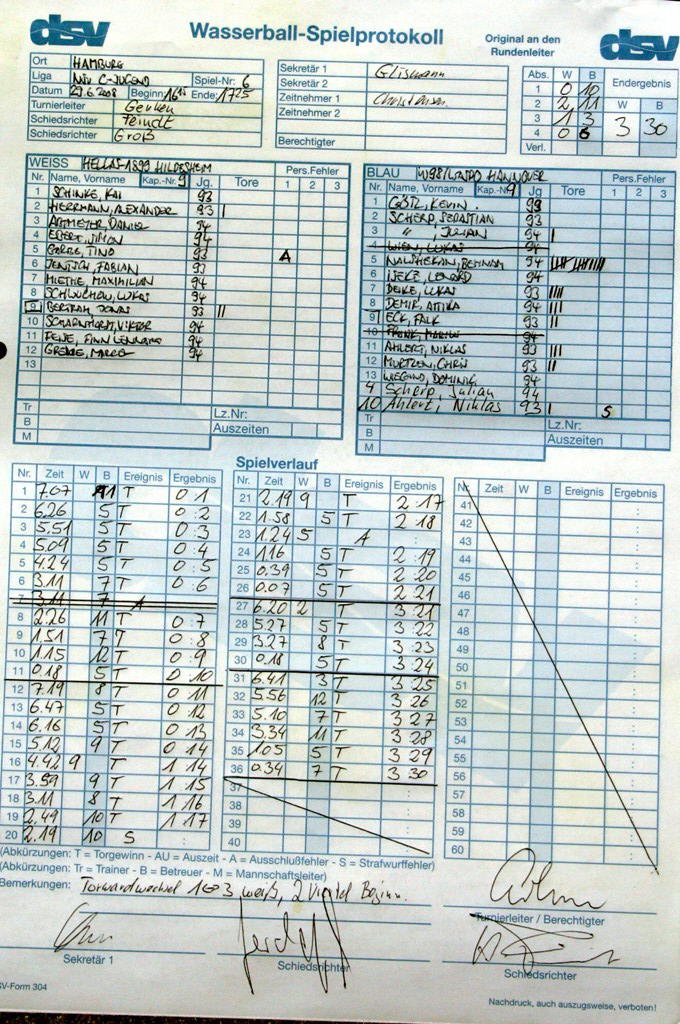 dsv Wasserball-Spielprotokoll Original an den Rundenleiter dsv
Ort HAMBURG
Liga C-JUGEND Spiel-Nr: 6
Datum 29.6.2008 Beginn: Ende: 1725
Turnierleiter Gerken
Schiedsrichter Feindt
Schiedsrichter Groß
Sekretär 1 Glismann
Sekretär 2
Zeitnehmer 1 Christensen
Zeitnehmer 2
Berechtigter
Abs. W B Endergebnis
1 0 10
2 2 11 W B
3 1 3 3 30
4 0 6
Verl.
WEISS HELLAS-1899 HILDESHEIM Pers.Fehler
Nr. Name, Vorname Kap.-Nr. 9 Jg. Tore 1 2 3
1 SCHINKE, KAI 93
2 HERRMANN, ALEXANDER 93 I
3 DANIEL 94
4 EBERT, SIMON 94
5 TINO 93 A
6 JENTSCH, FABIAN 94
7 MIETHE, MAXIMILIAN 94
8 LUKAS 94
9 BERTRAM, JONAS 93 II
10 SCHARNHORST, VIKTOR 94
11 FINN LENNARD 94
12 94
13
Tr Lz.Nr:
B Auszeiten
M
BLAU W98/WASPO HANNOVER Pers.Fehler
Nr. Name, Vorname Kap.-Nr. 9 Jg. Tore 1 2 3
1 GÖTZ, KEVIN 93
2 SCHERP, SEBASTIAN 93
3 " , JULIAN 94 I
4 WIEN, LUKAS 94
5 94
6 LENARD 94
7 DEIKE, LUKAS 94 IIII
8 DEMIR, ATTIKA 94 III
9 ECK, FALK 93 II
10 94
11 AHLERT, NIKLAS 93 III
12 CHRIS 93 II
13 WIEGAND, DOMINIK 94
4 Scherp, Julian 94
10 Ahlert, Niklas 93 I S
Tr Lz.Nr:
B Auszeiten
M
Spielverlauf
Nr. Zeit W B Ereignis Ergebnis
1 7.07 11 T 0:1
2 6.26 5 T 0:2
3 5.51 5 T 0:3
4 5.09 5 T 0:4
5 4.24 5 T 0:5
6 3.11 7 T 0:6
7 3.11 7 A
8 2.26 11 T 0:7
9 1.51 7 T 0:8
10 1.15 12 T 0:9
11 0.18 5 T 0:10
12 7.19 8 T 0:11
13 6.47 5 T 0:12
14 6.16 5 T 0:13
15 5.12 9 T 0:14
16 4.42 9 T 1:14
17 3.59 9 T 1:15
18 3.11 8 T 1:16
19 2.49 10 T 1:17
20 2.19 10 S :
Nr. Zeit W B Ereignis Ergebnis
21 2.19 9 T 2:17
22 1.58 5 T 2:18
23 1.24 5 A :
24 1.16 5 T 2:19
25 0.39 5 T 2:20
26 0.07 5 T 2:21
27 6.20 2 T 3:21
28 5.27 5 T 3:22
29 3.27 8 T 3:23
30 0.18 5 T 3:24
31 6.41 3 T 3:25
32 5.56 12 T 3:26
33 5.10 7 T 3:27
34 3.34 11 T 3:28
35 1.05 5 T 3:29
36 0.34 7 T 3:30
37
38
39
40
Nr. Zeit W B Ereignis Ergebnis
41
42
43
44
45
46
47
48
49
50
51
52
53
54
55
56
57
58
59
60
(Abkürzungen: T = Torgewinn - AU = Auszeit - A = Ausschlußfehler - S = Strafwurffehler)
(Abkürzungen: Tr = Trainer - B = Betreuer - M = Mannschaftsleiter)
Bemerkungen: Torwardwechsel 1 3 weiß, 2 Viertel Beginn.
Turnierleiter / Berechtigter
Sekretär 1 Schiedsrichter Schiedsrichter
SV-Form 304
Nachdruck, auch auszugsweise, verboten!